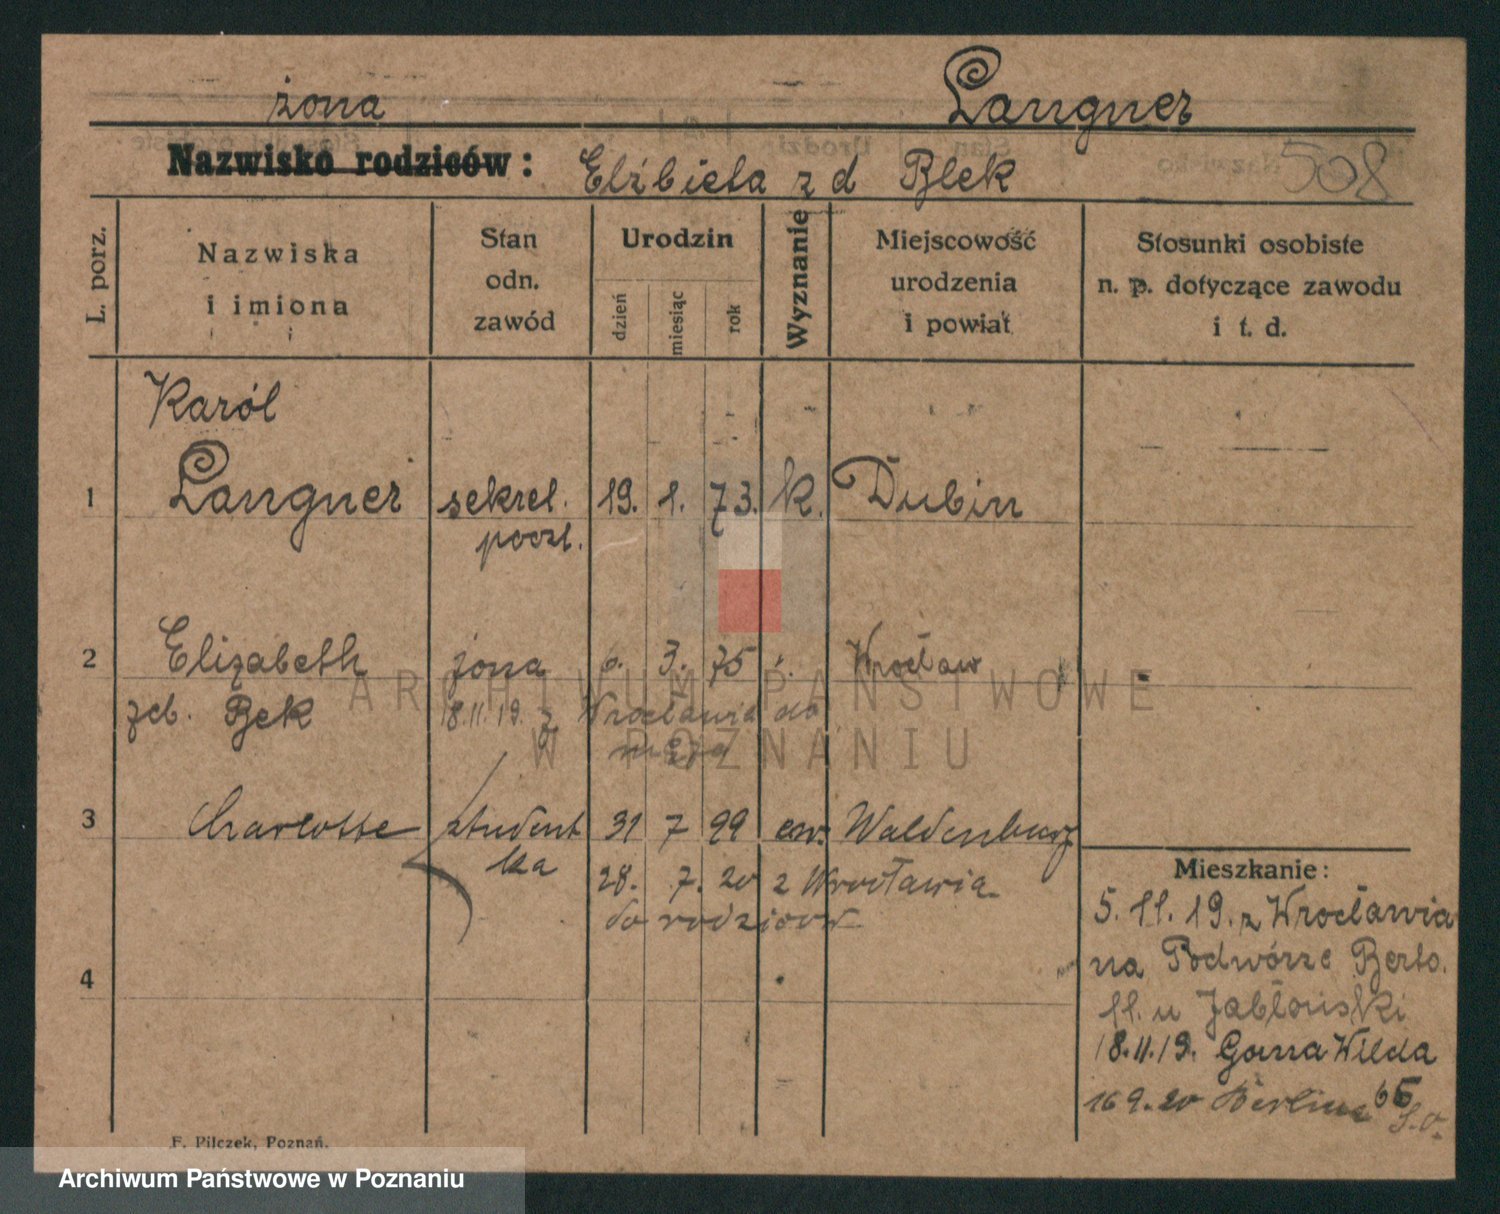 żona Langner
Nazwisko rodziców: Elżbieta z d Blek 508
L. porz.
Nazwiska i imiona
Stan odn. zawód
Urodzin
dzień miesiąc rok
Wyznanie
Miejscowość urodzenia i powiat
Stosunki osobiste n. p. dotyczące zawodu i t. d.
Karól
1 Langner sekret. 19. 1. 73. k. Dubin
poczt.
2 Elizabeth żona 6. 3. 75 Wrocław
zeb. Bek 18.11.19. z Wrocławia do
męża
3 Charlotte student 31 7 99 ew. Waldenburg
ka 28. 7. 20 z Wrocławia
do rodziców
4
Mieszkanie:
5. 11. 19. z Wrocławia
na Podwórze Berto.
11. u Jabłoński
18.11.19. Gorna Wilda
66
16 9. 20 Berlina
F. Pilczek, Poznań.
ARCHIWUM PAŃSTWOWE
W POZNANIU
Archiwum Państwowe w Poznaniu